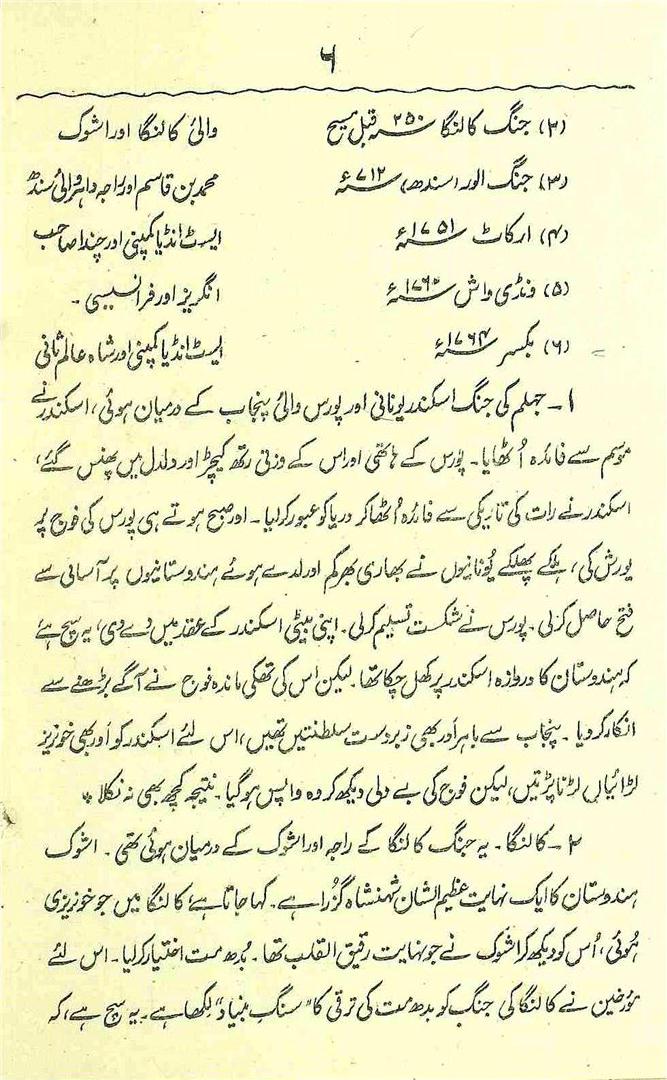 ۶
(۲) جنگ کالنگا ۲۵۰؁ قبل مسیح والئ کالنگا اور اشوک
(۳) جنگ الور (سندھ) ۷۱۲؁ء محمد بن قاسم اور راجہ داہر والئ سندھ
(۴) ارکاٹ ۱۷۵۱؁ء ایسٹ انڈیا کمپنی اور چندا صاحب
(۵) ونڈی واش ۱۷۶۰؁ء انگریز اور فرانسیسی ۔
(۶) بکسر ۱۷۶۴؁ء ایسٹ انڈیا کمپنی اور شاہ عالم ثانی
۱ ۔ جہلم کی جنگ اسکندر یونانی اور پورس والئ پنجاب کے درمیان ہوئی ، اسکندر نے
موسم سے فائدہ اُٹھایا ۔ پورس کے ہاتھی اور اس کے وزنی رتھ کیچڑ اور دلدل میں پھنس گئے ،
اسکندر نے رات کی تاریکی سے فائدہ اُٹھا کر دریا کو عبور کر لیا ۔ اور صبح ہوتے ہی پورس کی فوج پر
یورش کی ، ہلکے پھلکے یُونانیوں نے بھاری بھرکم اور لدے ہوئے ہندوستانیوں پر آسانی سے
فتح حاصل کر لی ۔ پورس نے شکست تسلیم کر لی ۔ اپنی بیٹی اسکندر کے عقد میں دے دی ، یہ سچ ہے
کہ ہندوستان کا دروازہ اسکندر پر کھل چکا تھا ۔ لیکن اس کی تھکی ماندہ فوج نے آگے بڑھنے سے
انکار کر دیا ۔ پنجاب سے باہر اَور بھی زبردست سلطنتیں تھیں ، اس لئے اسکندر کو اَور بھی خونریز
لڑائیاں لڑنا پڑتیں ، لیکن فوج کی بے دلی دیکھ کر وہ واپس ہو گیا ۔ نتیجہ کچھ بھی نہ نکلا *
۲ ۔ کالنگا ۔ یہ جنگ کالنگا کے راجہ اور اشوک کے درمیان ہوئی تھی ۔ اشوک
ہندوستان کا ایک نہایت عظیم الشان شہنشاہ گُزرا ہے ۔ کہا جاتا ہے ، کالنگا میں جو خونریزی
ہُوئی ، اُس کو دیکھ کر اشوک نے جو نہایت رقیق القلب تھا ۔ بُدھ مت اختیار کر لیا ۔ اس لئے
مؤرخین نے کالنگا کی جنگ کو بدھ مت کی ترقی کا "سنگِ بنیاد" لکھا ہے ۔ یہ سچ ہے ، کہ